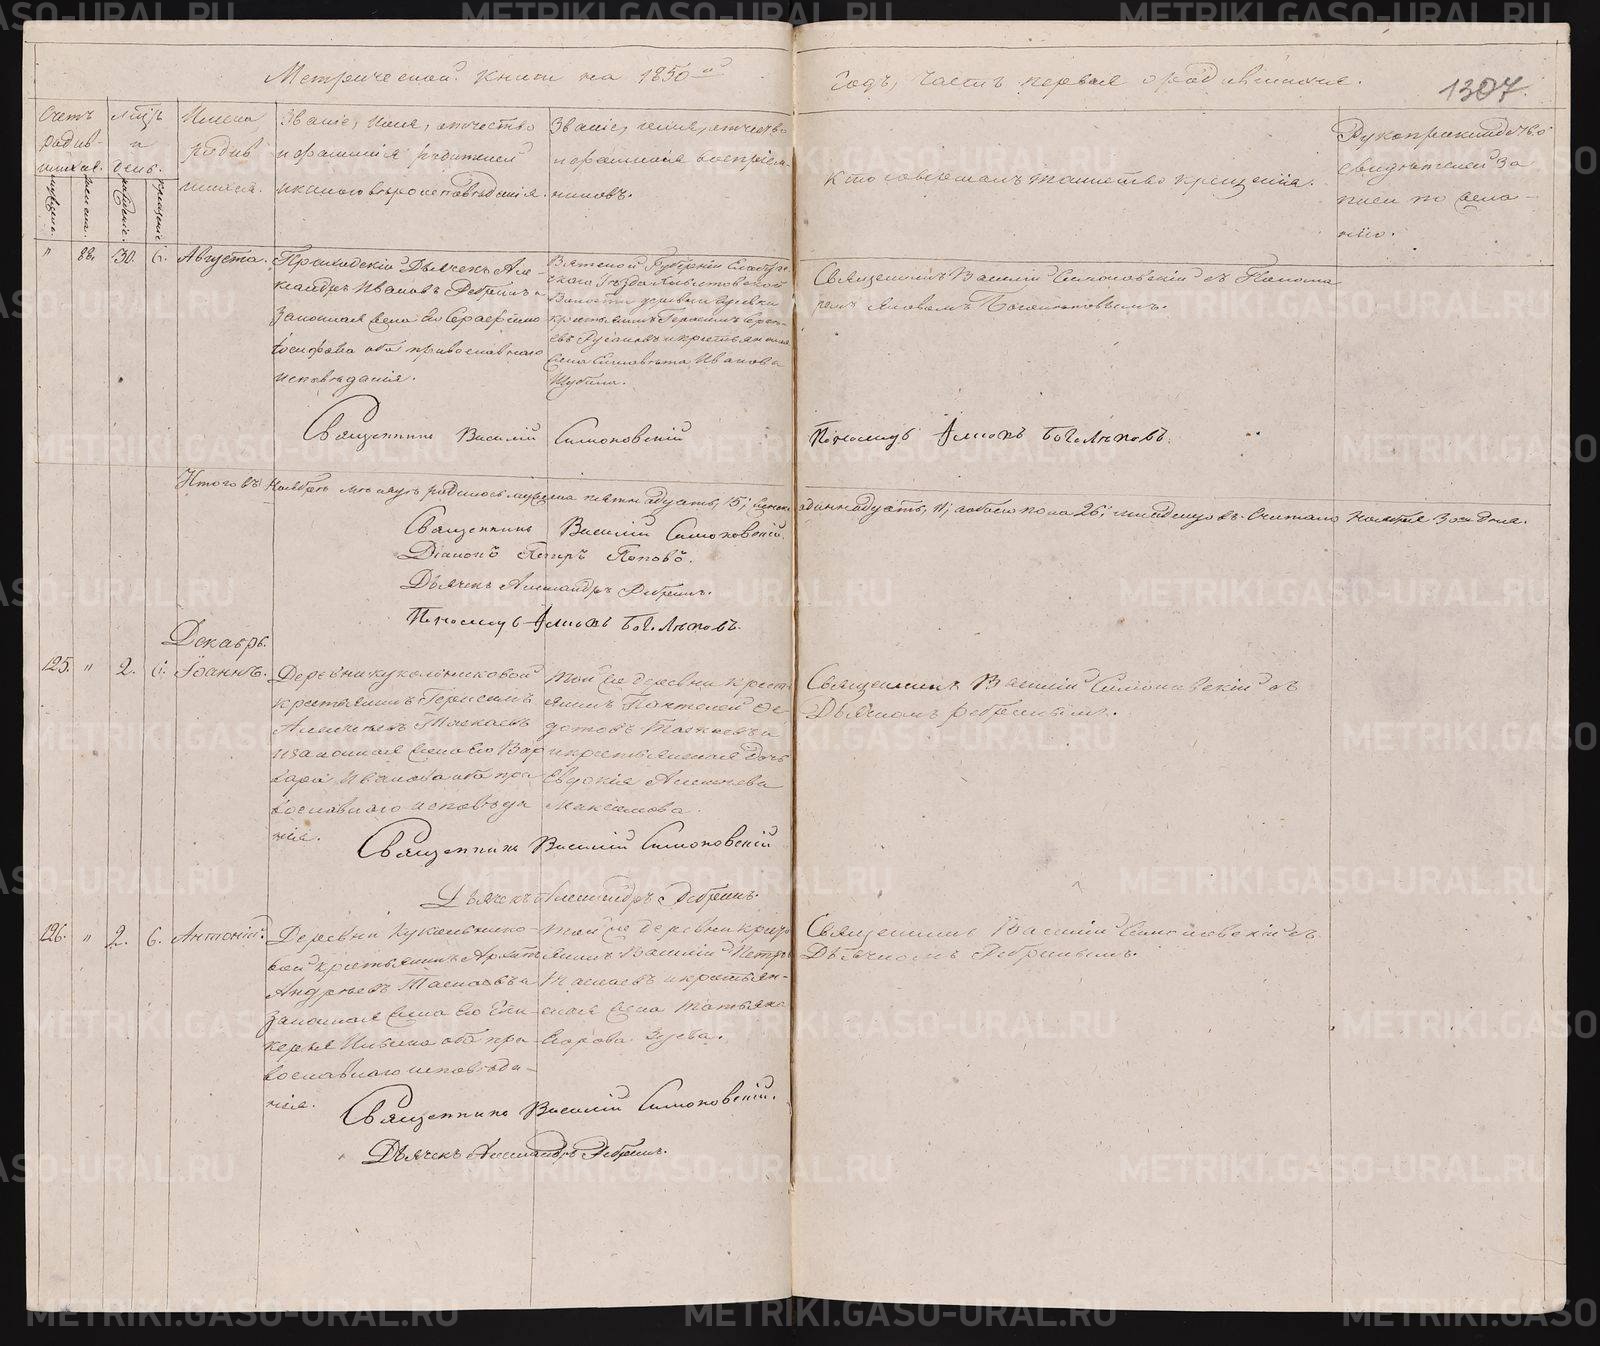 Метрической книги на 1850й
годъ, часть первая о родившихся.
1307.
Счетъ родив-шихся.
мужеска.
женска.
Мѣцъ и день.
рожденіе.
крещеніе.
Имена родив шихся.
Званіе, имя, отчество
и фамилія родителей
и какого вѣроисповѣданія.
Званіе, имя, отчество
и фамилія воспріем-
никовъ.
Кто совершалъ таинство крещенія.
Рукоприкладство
свидѣтелей за
писи по жела-
нію.
" 88. 30. 6. Августа.
Приходскій Дьячекъ Але-
ксандръ Ивановъ Ребринъ и
Законная жена его Серафима
Іосифова оба православнаго
исповѣданія.
Вятской Губерніи
уѣзда
Волости деревни
крестьянинъ Герасимъ
Русиновъ и крестьянская
жена Ивановa
Шубина.
Священникъ Василій Симоновскій съ Понома
ремъ Яковомъ Боголѣповымъ.
Священникъ Василій Симоновскій
Пономарь Іаковъ Боголѣповъ.
Итого въ Ноябрѣ мѣсяцѣ родилось мужеска пятнадцать, 15; женска одиннадцать, 11; обоего пола 26; младенцовъ. Считано Ноября 30го дня.
Священникъ Василій Симоновскій.
Діаконъ Петръ Поповъ.
Дьячекъ Александръ Ребринъ.
Пономарь Іаковъ Боголѣповъ.
Декабрь.
125. " 2. 6. Іоаннъ.
Деревни Кукольниковой
крестьянинъ Герасимъ
Алексѣевъ Таскаевъ
и законная жена его Вар
вара Иванова оба пра
вославнаго исповѣда
нія.
Той же деревни крест
янинъ Пантелей Ѳе
дотовъ Таскаевъ и
крестьянская дочь
Евдокія Алексѣева
Максимова.
Священникъ Василій Симоновскій съ
Дьячкомъ Ребринымъ.
Священникъ Василій Симоновскій
Дьячекъ Александръ Ребринъ.
126. " 2. 6. Антоній.
Деревни Кукольнико-
вой крестьянинъ
Андрѣевъ Таскаевъ и
Законная жена его Ека
терина Ильина оба пра
вославнаго исповѣда-
нія.
Той же деревни крест
янинъ Василій Петровъ
Таскаевъ и крестьян-
ская жена Татьяна
Егорова Зуева.
Священникъ Василій Симоновскій съ
Дьячкомъ Ребринымъ.
Священникъ Василій Симоновскій.
Дьячекъ Александръ Ребринъ.
METRIKI.GASO-URAL.RU